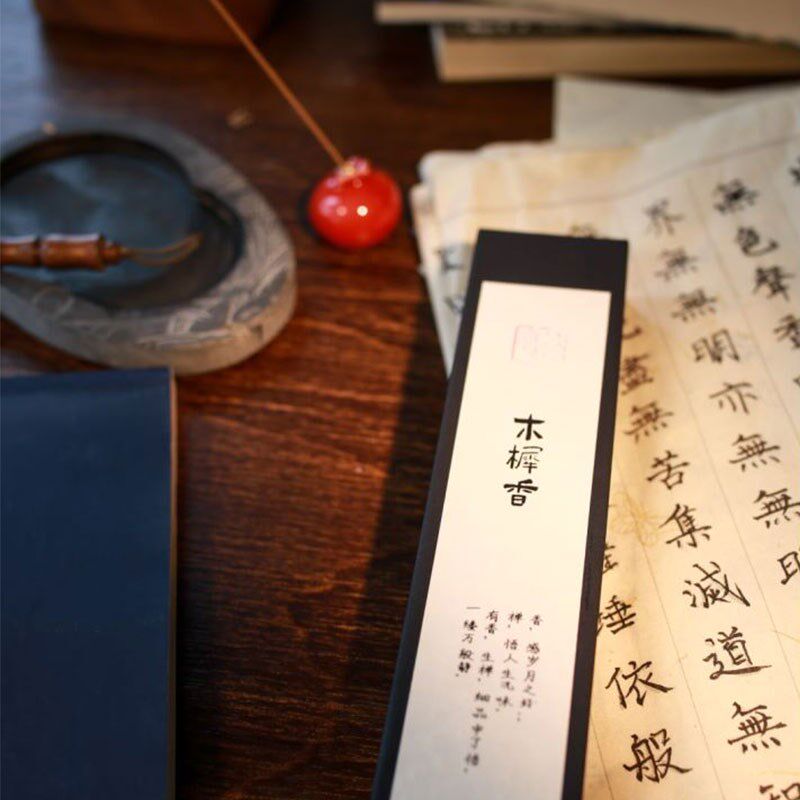 無色聲香
界無無明亦無無明
盡無苦集滅道無
埵依般
木樨香
香，感岁月之
禅，悟人生况味，
有香，生禅，细品中了悟，
一缕万般静。